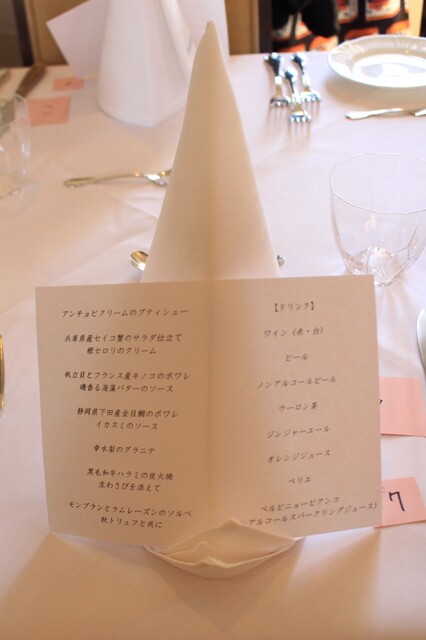 アンチョビクリームのプティシュー
兵庫県産セイコ蟹のサラダ仕立て
根セロリのクリーム
帆立貝とフランス産キノコのポワレ
磯香る海藻バターのソース
静岡県下田産金目鯛のポワレ
イカスミのソース
幸水梨のグラニテ
黒毛和牛ハラミの炭火焼
生わさびを添えて
モンブランとラムレーズンのソルベ
秋トリュフと共に
【ドリンク】
ワイン（赤・白）
ビール
ノンアルコールビール
ウーロン茶
ジンジャーエール
オレンジジュース
ペリエ
ペルピニョービアンコ
アルコールスパークリングジュース）
7